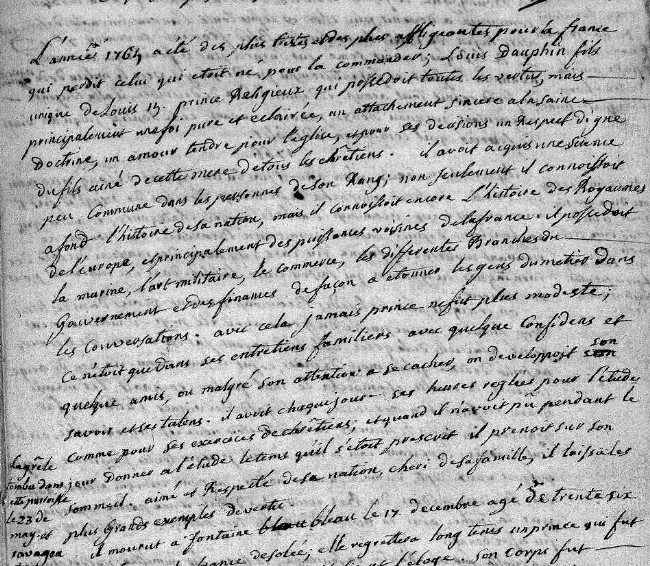 L'année 1764 a été des plus tristes et des plus affligeantes pour la france
qui perdit celui qui etoit né pour la commander; Louis Dauphin fils
unique de Louis 15. prince Religieux qui possedoit toutes les vertus, mais
principalement une foi pure et eclairée, un attachement sincere a la saine
Doctrine, un amour tendre pour l'eglise, et pour ses decisions un Respect digne
du fils ainé de cette mere de tous les chrêtiens. il avoit acquis une science
peu Commune dans les personnes de son Rang; non seulement il connoissoit
a fond l'histoire de sa nation, mais il connoissoit encore l'histoire des Royaumes
de l'europe, et principalement des puissances voisines de la france. il possedoit
la marine, l'art militaire, le commerce, les differentes Branches du
Gouvernement et des finances de façon a etonner les gens du metier dans
les Conversations. avec cela jamais prince ne fut plus modeste;
ce n'etoit que dans ses entretiens familiers avec quelque Confidens et
quelque amis, ou malgré son attention a se cacher, on developpoit son
savoir et ses talens. il avoit chaque jour ses heures reglées pour l'étude
comme pour ses exercices de chrêtiens; et quand il n'avoit pû pendant le
jour donner a l'étude le tems qu'il s'étoit prescrit il prenoit sur son
sommeil. aimé et Respecté de sa nation, cheri de sa famille, il laissa les
plus Grands exemples de vertu.
il mourut a fontainebleau le 17 decembre agé de trente six
france desolée; elle regrettera long tems un prince qui fut
l'éloge. son corps fut
La grêle
tomba dans
cette paroisse
le 23 de
may. et
ravagea